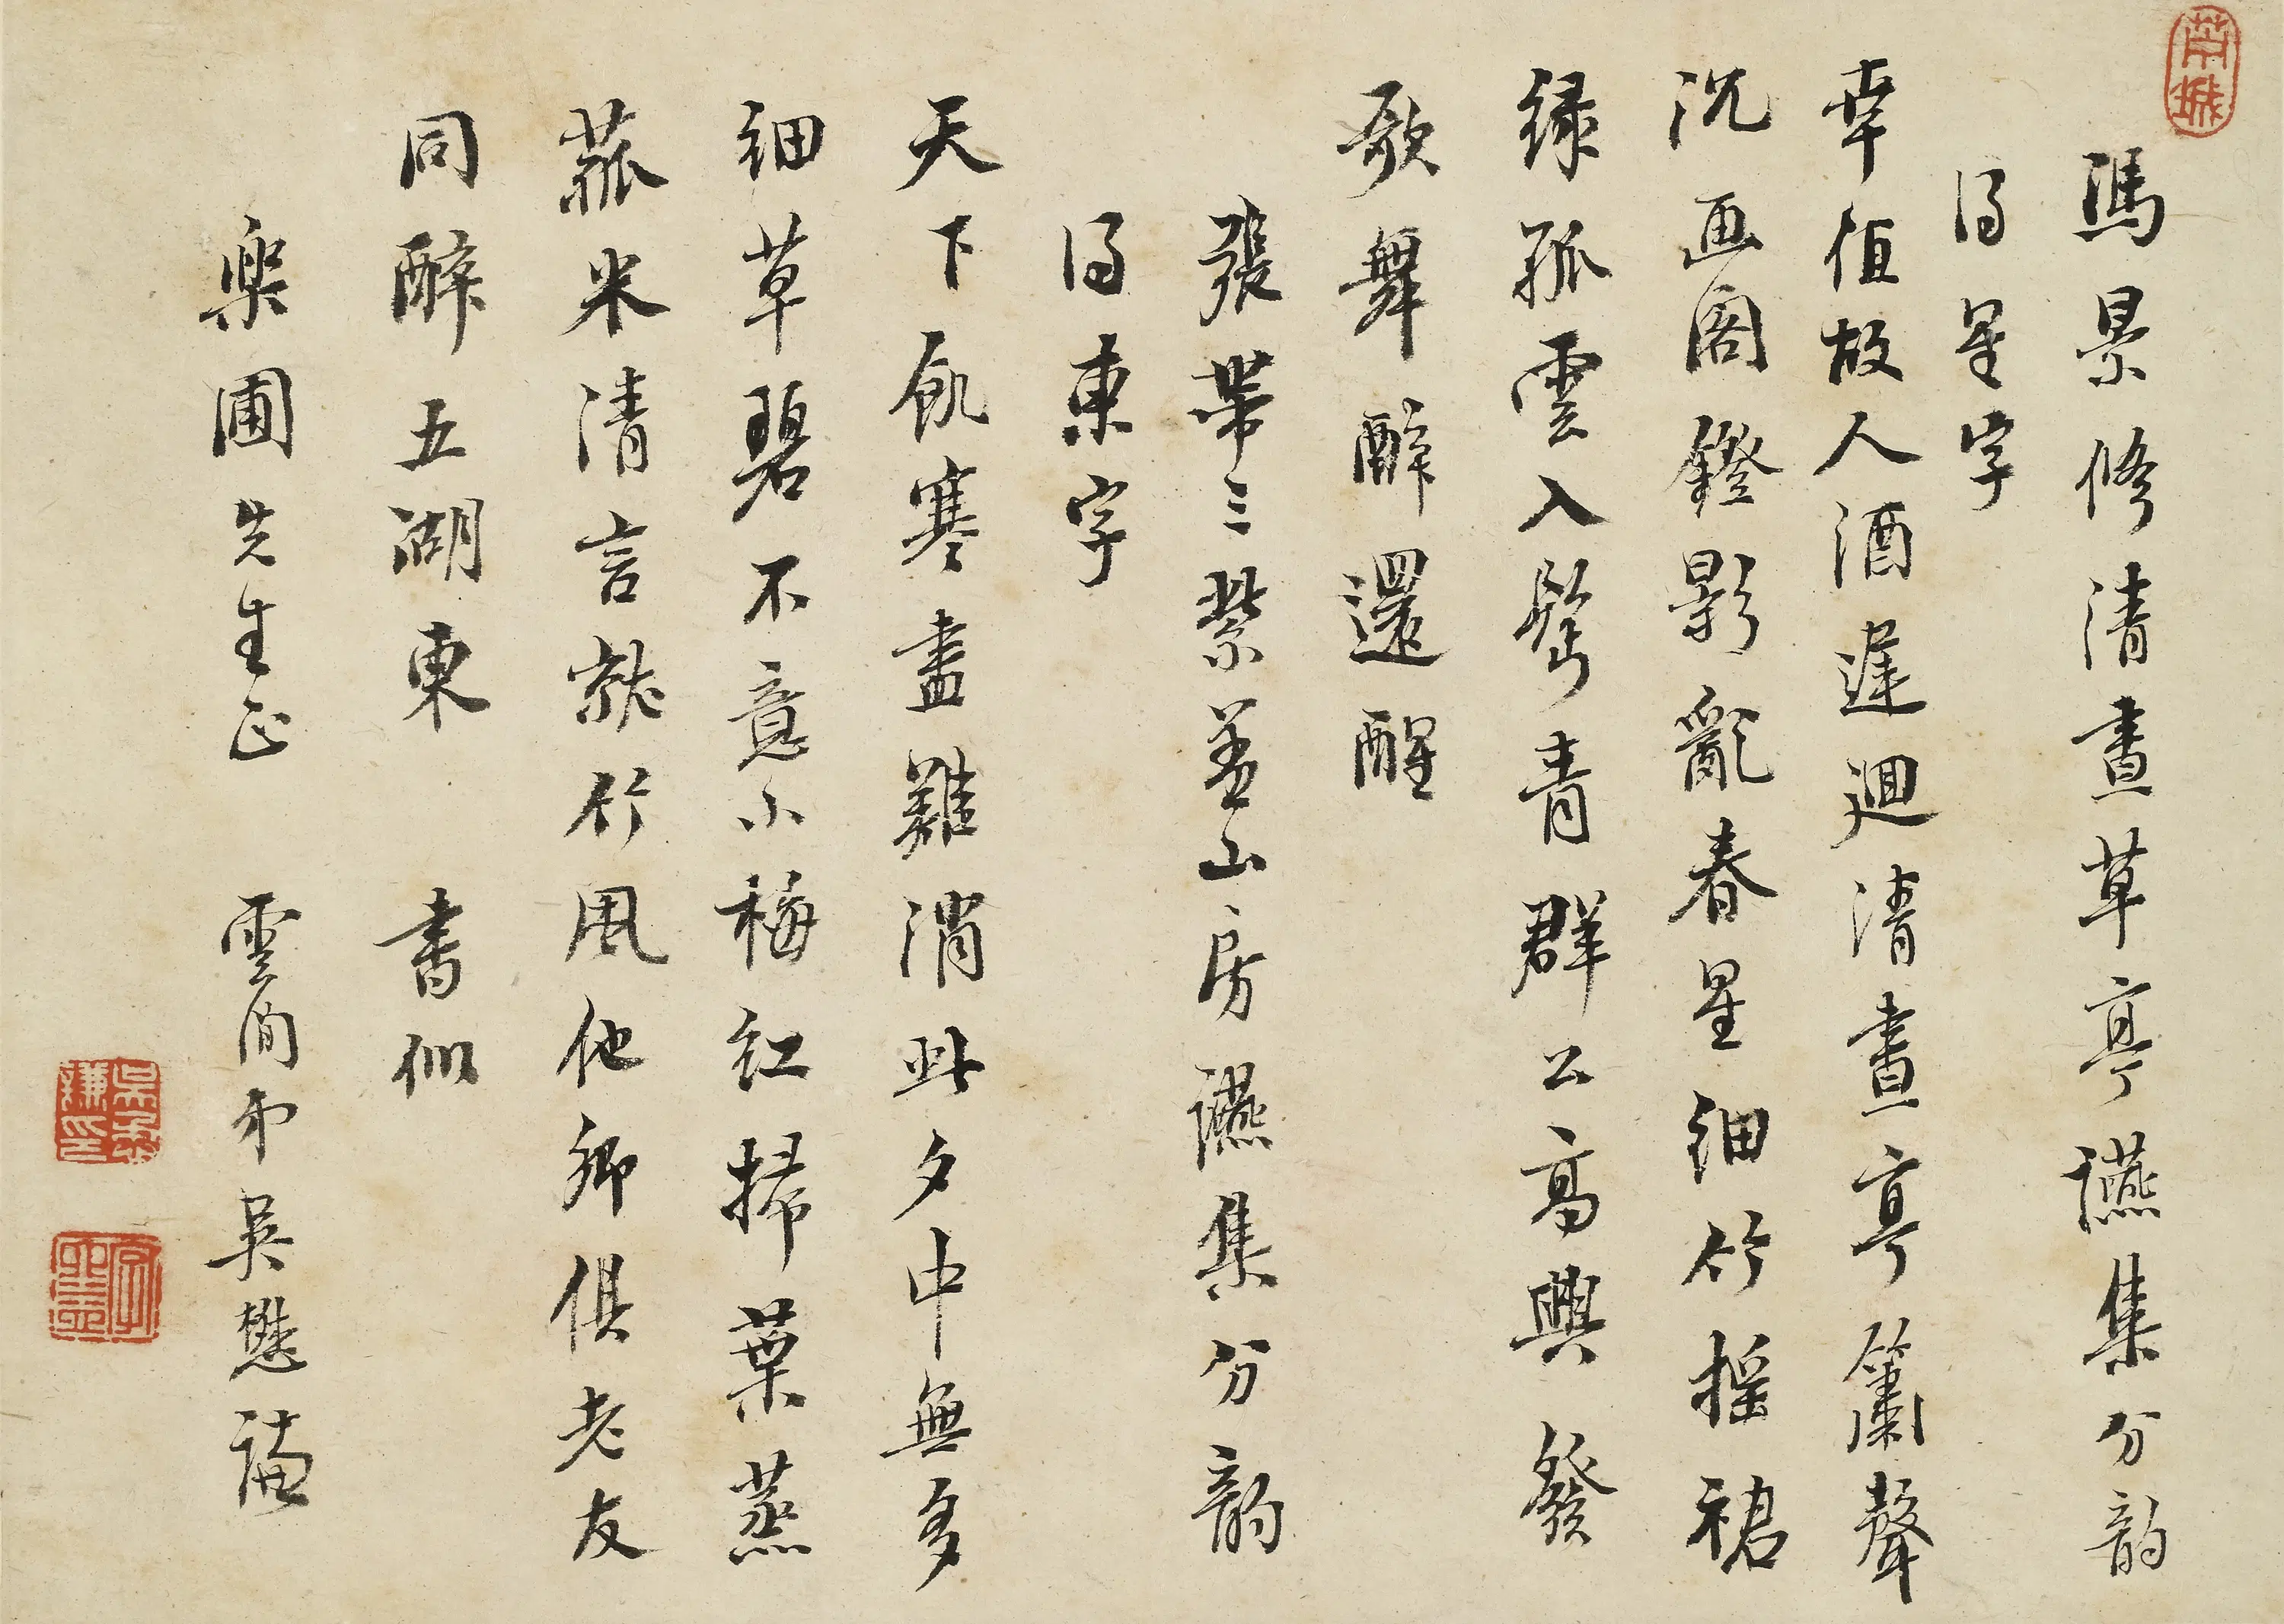 馮景修清晝草亭讌集分韵
得星字
幸值故人酒遲迴清晝亭簫聲
沉画閣鐙影亂春星細竹搖裙
緑孤雲入髩青群公高興發
歌舞醉還醒
張帶三紫蓋山房讌集分韵
得東字
天下飢寒盡難消此夕中無多
細草碧不意小梅紅掃葉蒸
菰米清言就竹風他鄉俱老友
同醉五湖東 書似
樂圃先生正 雲間弟吳懋謙